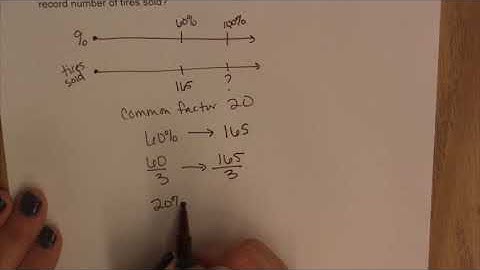 record number of tires sold?
60% 100%
%
tires
sold
165 ?
Common factor 20
60% → 165
60/3 → 165/3
20%